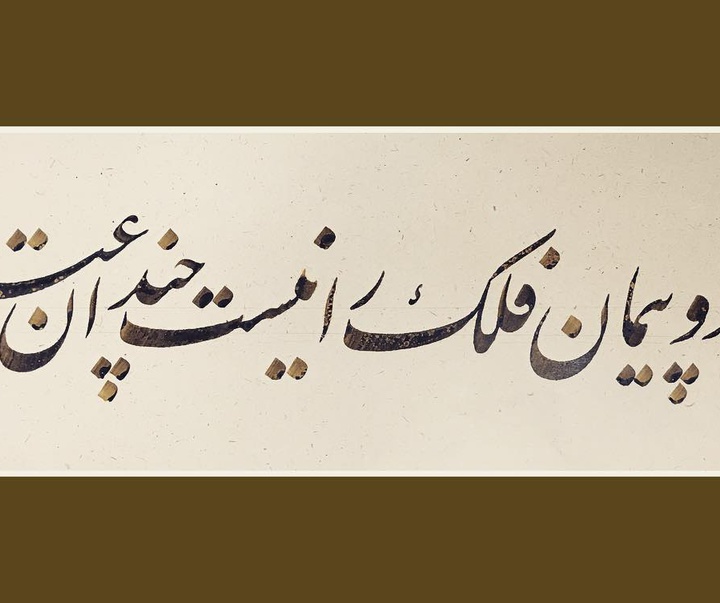 و پیمان فلک را نیست چندان